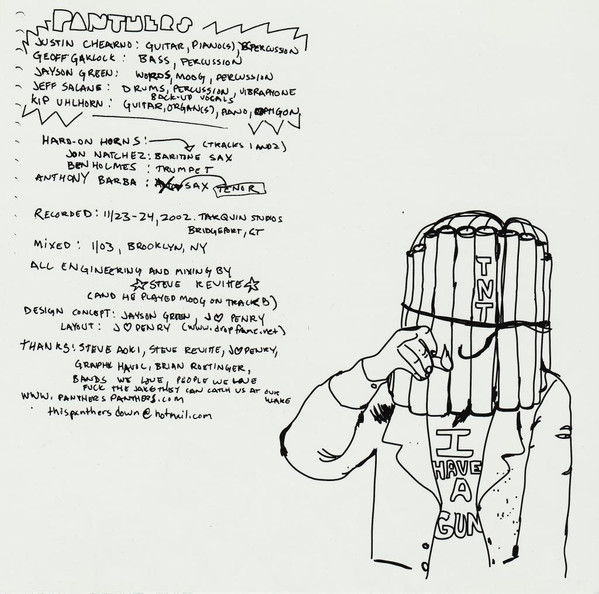 PANTHERS
JUSTIN CHEARNO: GUITAR, PIANO(S), PERCUSSION
GEOFF GARLOCK: BASS, PERCUSSION
JAYSON GREEN: WORDS, MOOG, PERCUSSION
JEFF SALANE: DRUMS, PERCUSSION, VIBRAPHONE
BACK-UP VOCALS
KIP UHLHORN: GUITAR, ORGAN(S), PIANO, OPTIGON
HARD-ON HORNS: (TRACKS 1 AND 2)
JON NATCHEZ: BARITONE SAX
BEN HOLMES: TRUMPET
ANTHONY BARBA: SAX TENOR
RECORDED: 11/23-24, 2002. TARQUIN STUDIOS
BRIDGEPORT, CT
MIXED: 1/03, BROOKLYN, NY
ALL ENGINEERING AND MIXING BY
☆STEVE REVITTE☆
(AND HE PLAYED MOOG ON TRACK 3)
DESIGN CONCEPT: JAYSON GREEN, J♡PENRY
LAYOUT: J♡PENRY (www.dropframe.net)
THANKS: STEVE AOKI, STEVE REVITTE, J♡PENRY,
GRAPHK HAVOC, BRIAN ROETINGER,
BANDS WE LOVE, PEOPLE WE LOVE
FUCK THE JAKE THEY CAN CATCH US AT OUR
WAKE
WWW.PANTHERSPANTHERS.COM
thispanthersdown@hotmail.com
TNT
I
HAVE
A
GUN